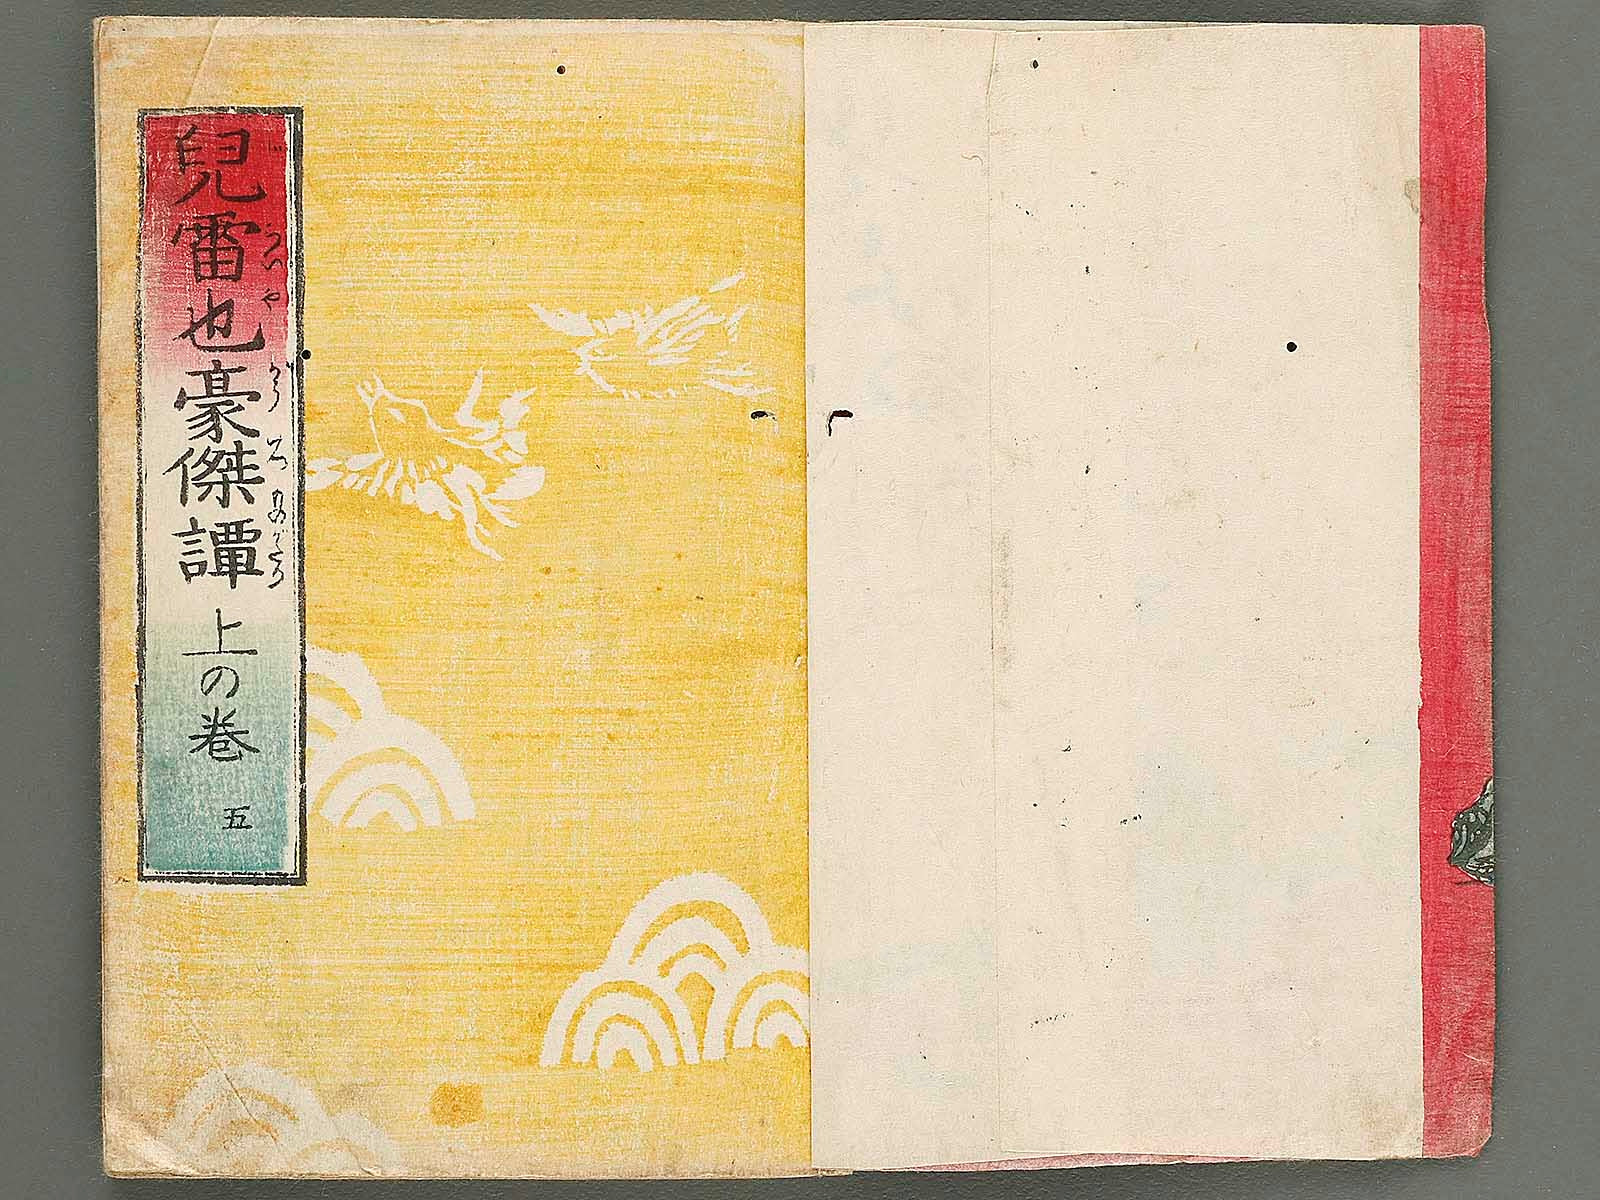 兒雷也豪傑譚 上の巻 五
じ らいや がう けつ ものがたり